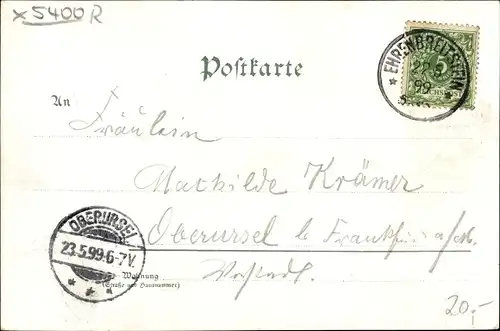 x5400R
EHRENBREITSTEIN
5
99
REICHSPOST
Postkarte
An
Fräulein
Mathilde Krämer
Oberursel b. Frankfurt a/M.
Vorstadt.
OBERURSEL
23.5.99.6-7V.
Wohnung
(Straße und Hausnummer)
20,-